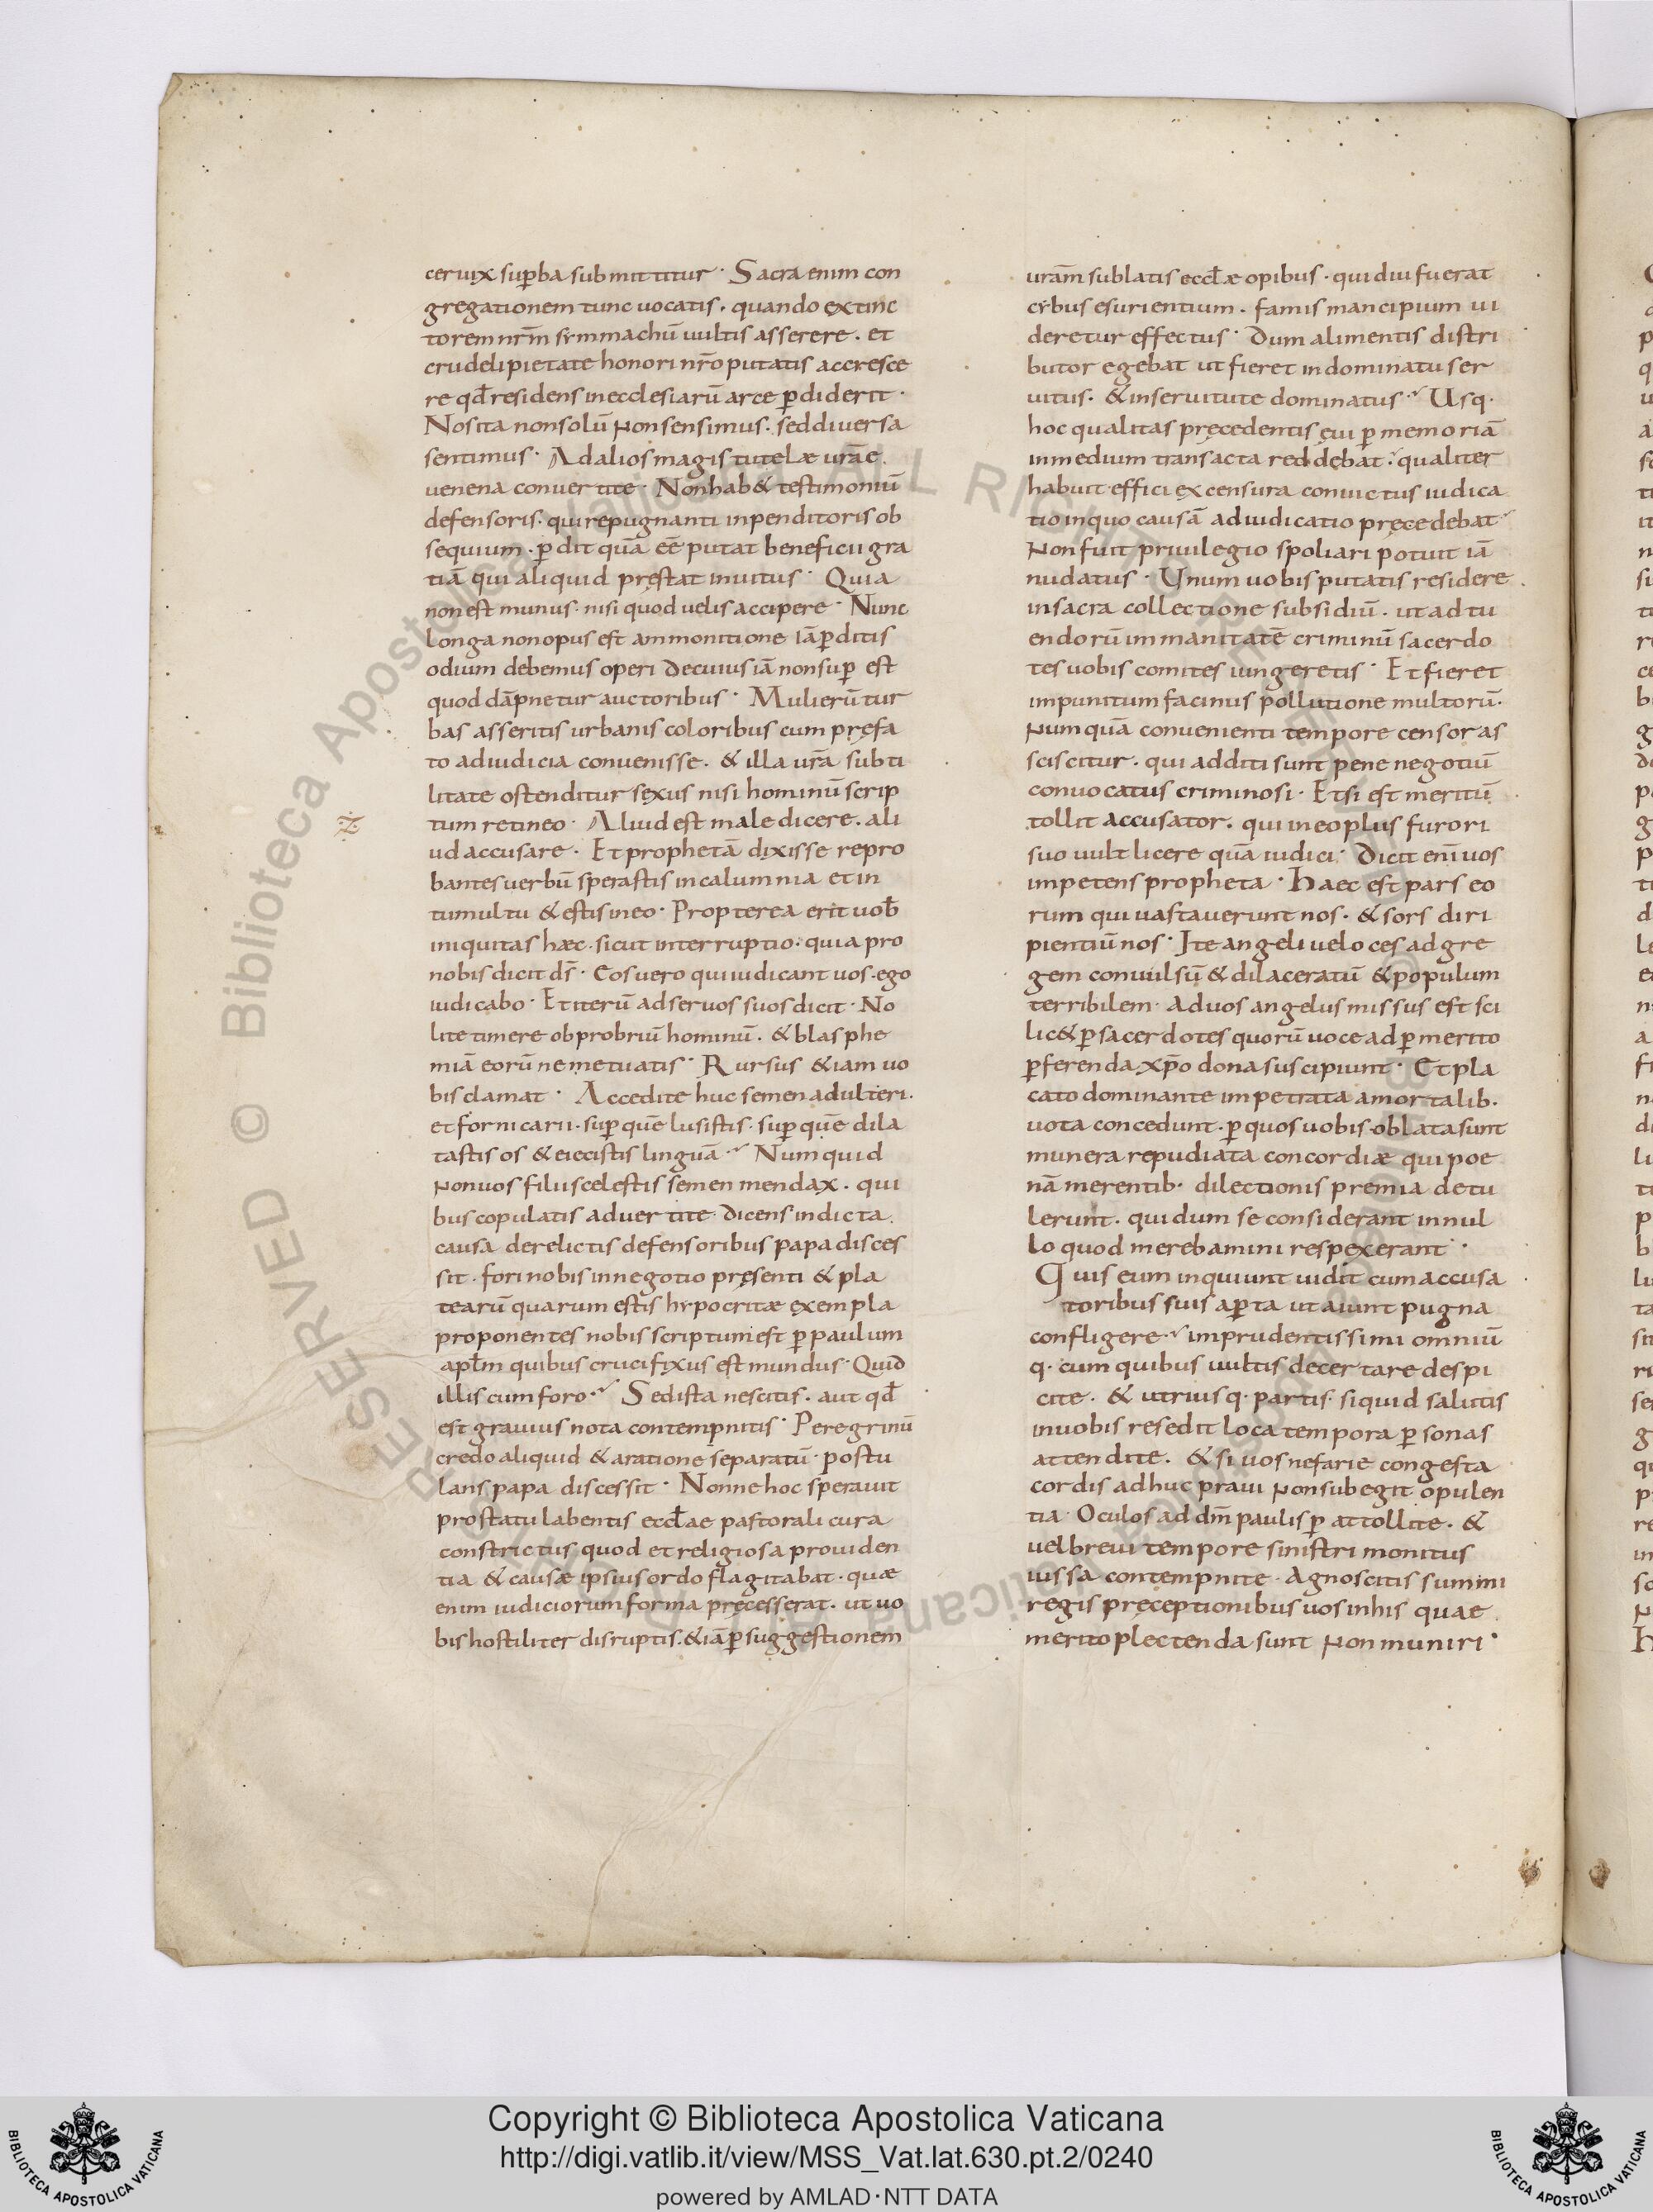 ceruix suꝑba submittitur · Sacra enim con
gregationem tunc uocatis · quando extinc
torem nr̄m symmachū uultis asserere · et
crudeli pietate honori nr̄o putatis accresce
re qd̄ residens in ecclesiarū arce ꝑdiderit ·
Nos ita non solū non sensimus · sed diuersa
sentimus · Ad alios magis tutelæ urāe
uenena conuertite · Non hab& testimoniū
defensoris · qui repugnanti inpenditoris ob
sequium · ꝑdit quā eē putat beneficii gra
tiā qui aliquid pręstat inuitus · Quia
non est munus · nisi quod uelis accipere · Nunc
longa non opus est ammonitione iā ꝑditis
odium debemus operi de cuius iā non suꝑ est
quod dāpnetur auctoribus · Mulierū tur
bas asseritis urbanis coloribus cum pręfa
to ad iudicia conuenisse · & illa urā subti
litate ostenditur sexus nisi hominū scrip
tum retineo · Aliud est maledicere · ali
ud accusare · Et prophetā dixisse repro
bantes uerbū sperastis in calumnia et in
tumultu & estis in eo · Propterea erit uob̄
iniquitas hæc · sicut interruptio · quia pro
nobis dicit ds̄ · Eos uero qui iudicant uos · ego
iudicabo · Et iterū ad seruos suos dicit · No
lite timere obprobriū hominū · & blasphe
miā eorū ne metuatis · Rursus &iam uo
bis clamat · Accedite huc semen adulteri ·
et fornicarii · suꝑ quē lusistis · suꝑ quē dila
tastis os & eiecistis linguā · Numquid
non uos filii scelestis semen mendax · qui
bus copulatis aduertite dicens indicta
causa derelictis defensoribus papa disces
sit · fori nobis in negotio pręsenti & pla
tearū quarum estis hypocritæ exempla
proponentes nobis scriptum est ꝑ paulum
apl̄m quibus crucifixus est mundus · Quid
illis cum foro · Sed ista nescitis · aut qd̄
est grauius nota contempnitis · Peregrinū
credo aliquid & a ratione separatū · postu
lans papa discessit · Nonne hoc sperauit
pro statu labentis eccl̄ae pastorali cura
constrictus quod et religiosa prouiden
tia & causæ ipsius ordo flagitabat · quæ
enim iudiciorum forma pręcesserat · ut uo
bis hostiliter disruptis · &iā ꝑ suggestionem
urām sublatis eccl̄æ opibus · qui diu fuerat
cybus esurientium · famis mancipium ui
deretur effectus · Dum alimentis distri
butor egebat ut fieret in dominatu ser
uitus · & in seruitute dominatus · Usq·
hoc qualitas pręcedentis eui ꝑ memoriā
in medium transacta reddebat · qualiter
habuit effici ex censura conuictus iudica
tio in quo causā adiudicatio pręcedebat
Non fuit priuilegio spoliari potuit iā
nudatus · Unum uobis putatis residere
in sacra collectione subsidiū · ut ad tu
endorū immanitatē criminū sacerdo
tes uobis comites iungeretis · Et fieret
impunitum facinus pollutione multorū ·
Numquā conuenienti tempore censor as
sciscitur · qui additi sunt pene negotiū
conuocatus criminosi · Etsi est meritū
tollit accusator · qui in eo plus furori
suo uult licere quā iudici · Dicit enī uos
impetens propheta · Haec est pars eo
rum qui uastauerunt nos · & sors diri
pientiū nos · Ite angeli ueloces ad gre
gem conuulsū & dilaceratū & populum
terribilem · Ad uos angelus missus est sci
lic& ꝑ sacerdotes quorū uoce ad ꝑ merito
ꝑferenda xp̄o dona suscipiunt · Et pla
cato dominante impetrata a mortalib·
uota concedunt · ꝑ quos uobis oblata sunt
munera repudiata concordiæ qui poe
nā merentib· dilectionis premia detu
lerunt · qui dum se considerant in nul
lo quod merebamini respexerant ·
Quis eum inquiunt uidit cum accusa
toribus suis aꝑta ut aiunt pugna
confligere · imprudentissimi omniū
q· cum quibus uultis decertare despi
cite · & utriusq· partis · siquid salutis
in uobis resedit loca tempora ꝑsonas
attendite · & si uos nefarie congesta
cordis adhuc praui non subegit opulen
tia · Oculos ad dm̄ paulisꝑ attollite · &
uel breui tempore sinistri monitus
iussa contempnite · Agnoscitis summi
regis pręceptionibus uos in his quae
merito plectenda sunt non muniri ·
Copyright © Biblioteca Apostolica Vaticana
http://digi.vatlib.it/view/MSS_Vat.lat.630.pt.2/0240
powered by AMLAD·NTT DATA
BIBLIOTECA APOSTOLICA VATICANA
BIBLIOTECA APOSTOLICA VATICANA